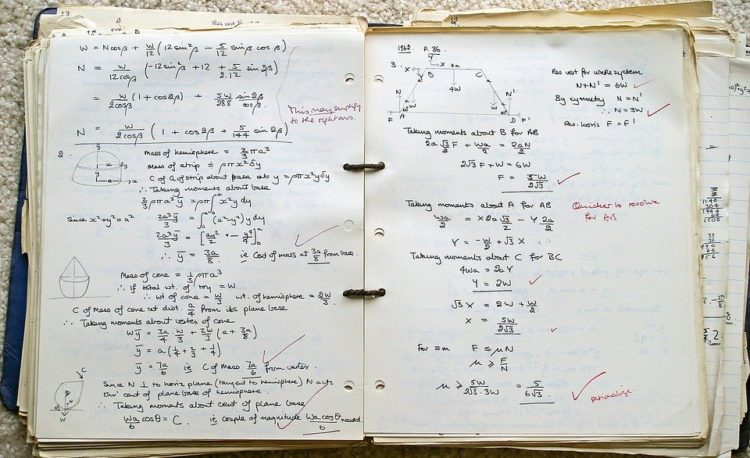 W = N cosβ + W/12 (12 sin²β − 5/12 sinβ cosβ)
N = W/12cosβ (−12 sin²β + 12 + 5/2.12 sin 2β)
= W/2cosβ (1 + cos2β) + 5W/288 sin2β/cosβ.
N = W/2cosβ (1 + cos2β + 5/144 sin 2β)
This may simplify
to the right ans.
2.
Mass of hemisphere = 2/3 πa³
C of G of strip about base at y = ρπx²yδy
∴ Taking moments about base
2/3 ρπa³ȳ = ρπ∫x²y dy
Since x²+y²=a²
2a³ȳ/3 = ∫₀ᵃ (a²−y²)y dy
∴ ȳ = 3a/8 ie C of mass at 3a/8 from base.
Mass of cone = 1/3 ρπa³
∴ If total wt. of toy = W
∴ wt of cone = W/3 wt. of hemisphere = 2W/3
C of Mass of cone wt dist. a/4 from its plane base
∴ Taking moments about vertex of cone
Wȳ = 3a/4 · W/3 + 2W/3 (a + 3a/8)
ȳ = a(1/4 + 2/3 + 1/4)
ȳ = 7a/6 ie C of Mass 7a/6 from vertex.
Since N ⊥ to horiz plane (tangent to hemisphere) N acts
thro' cent of plane base of hemisphere.
∴ Taking moments about cent of plane base
Wa/6 cosθ = C. ie couple of magnitude Wa cosθ/6 needed.
P. 36.
3.
X
Y
B
C
4W
N
N'
F
A
D
F'
Res vert for whole system
N + N' = 6W
By symmetry N = N'
∴ N = 3W
Res. horiz F = F'
Taking moments about B for AB
2a√3/2 F + Wa/2 = 2aN/2
2√3F + W = 6W
F = 5W/2√3
Taking moments about A for AB
Quicker to resolve
for AB
Wa/2 = X2a√3/2 − Y 2a/2
Y = −W/2 + √3X
Taking moments about C for BC
4Wa = 2aY
Y = 2W
√3X = 2W + W/2
X = 5W/2√3
For Eqm F ≤ μN
μ ≥ F/N
μ ≥ 5W/2√3·3W = 5/6√3
rationalise.